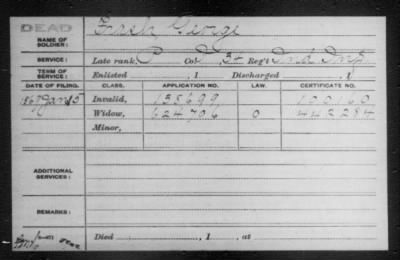 DEAD
NAME OF SOLDIER: George
SERVICE: Late rank, P Co. Reg't Ind Inf
TERM OF SERVICE: Enlisted , 1 Discharged , 1
DATE OF FILING. CLASS. APPLICATION NO. LAW. CERTIFICATE NO.
Jan 15 Invalid, 138699
Widow, 624706 0 442284
Minor,
ADDITIONAL SERVICES:
REMARKS:
Died , 1 , at